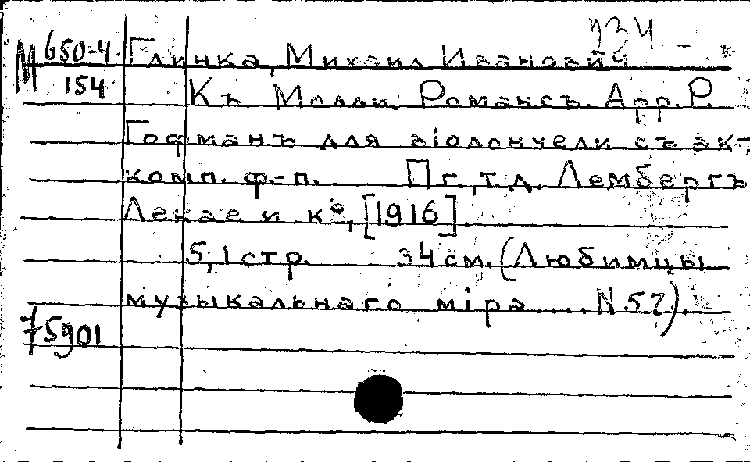 734
М 650-4 Глинка, Михаил Иванович
154 Къ Молли. Романсъ. Арр. Р.
Гофманъ для віолончели съ ак-
комп. ф.-п. Пг., т.д. Лембергъ
Лекае и кº, [1916]
5, 1 стр. 34 см. (Любимцы
музыкальнаго міра ... N 52).
75901